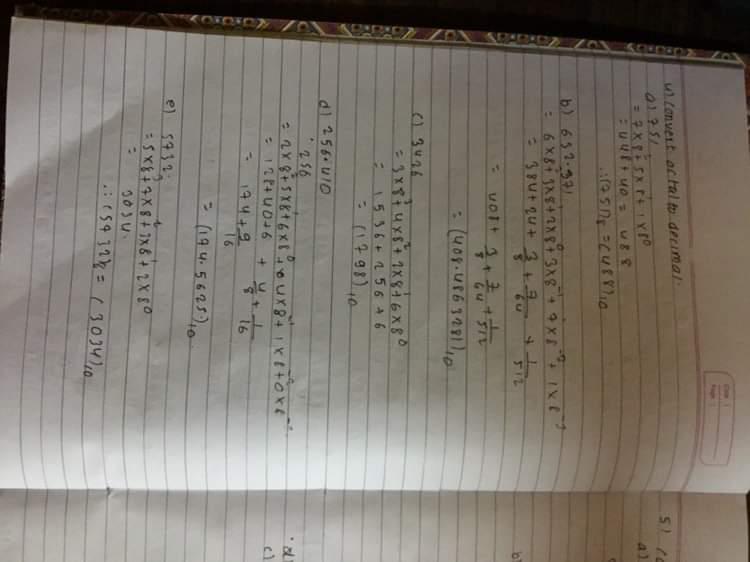 Date :
Page :
4) Convert octal to decimal.
a) 751
= 7×8²+5×8¹+1×8⁰
= 448+40 = 488
∴ (751)₈ = (488)₁₀
b) 632.371
= 6×8²+3×8¹+2×8⁰+3×8⁻¹+7×8⁻²+1×8⁻³
= 384+24+ 3/8 + 7/64 + 1/512
= 408+ 3/8 + 7/64 + 1/512
= (408.4863281)₁₀
c) 3426
= 3×8³+4×8²+2×8¹+6×8⁰
= 1536+256+6
= (1798)₁₀
d) 256.410
256
= 2×8²+5×8¹+6×8⁰+4×8⁻¹+1×8⁻²+0×8⁻³
= 128+40+6 + 4/8 + 1/16
= 174+ 9/16
= (174.5625)₁₀
e) 5732
= 5×8³+7×8²+3×8¹+2×8⁰
= 3034.
∴ (5732)₈ = (3034)₁₀
5)
a)
b)
d)
c)